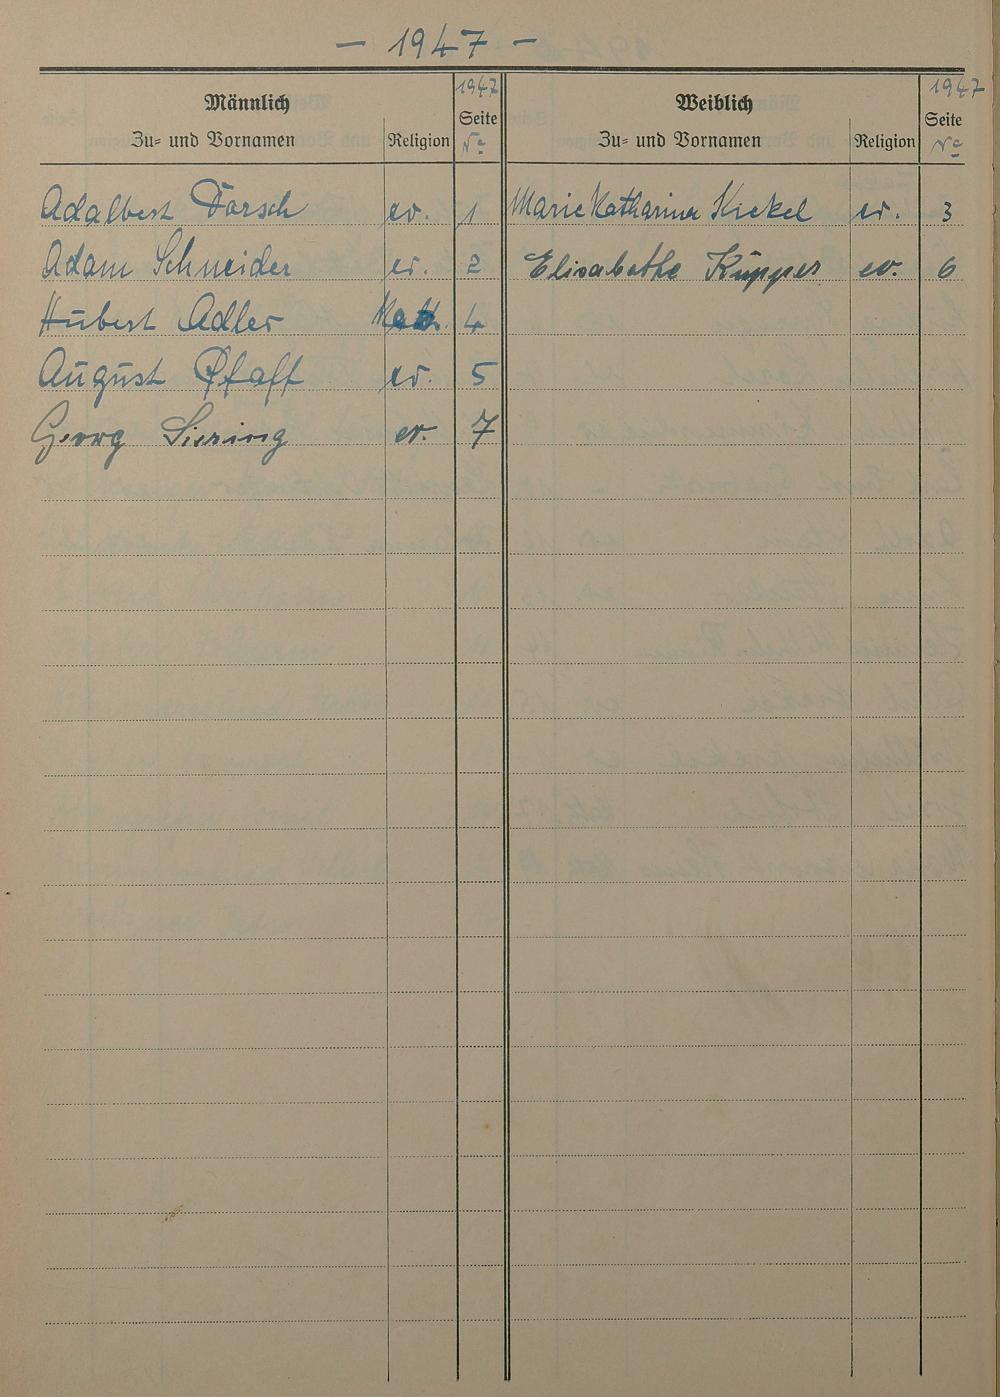 - 1947 -
Männlich
Zu= und Vornamen
Religion
1947
Seite
No
Weiblich
Zu= und Vornamen
Religion
1947
Seite
No
Adalbert Dorsch ev. 1
Marie Katharina Krekel ev. 3
Adam Schneider ev. 2
Elisabethe Küpper ev. 6
Hubert Adler Kath. 4
August Pfaff ev. 5
Georg Siering ev. 7